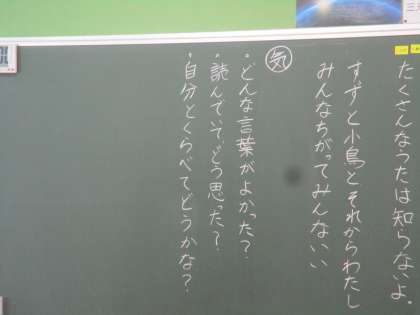 たくさんなうたは知らないよ。
すずと小鳥とそれからわたし
みんなちがってみんないい
気
・どんな言葉がよかった？
・読んでいてどう思った？
・自分とくらべてどうかな？